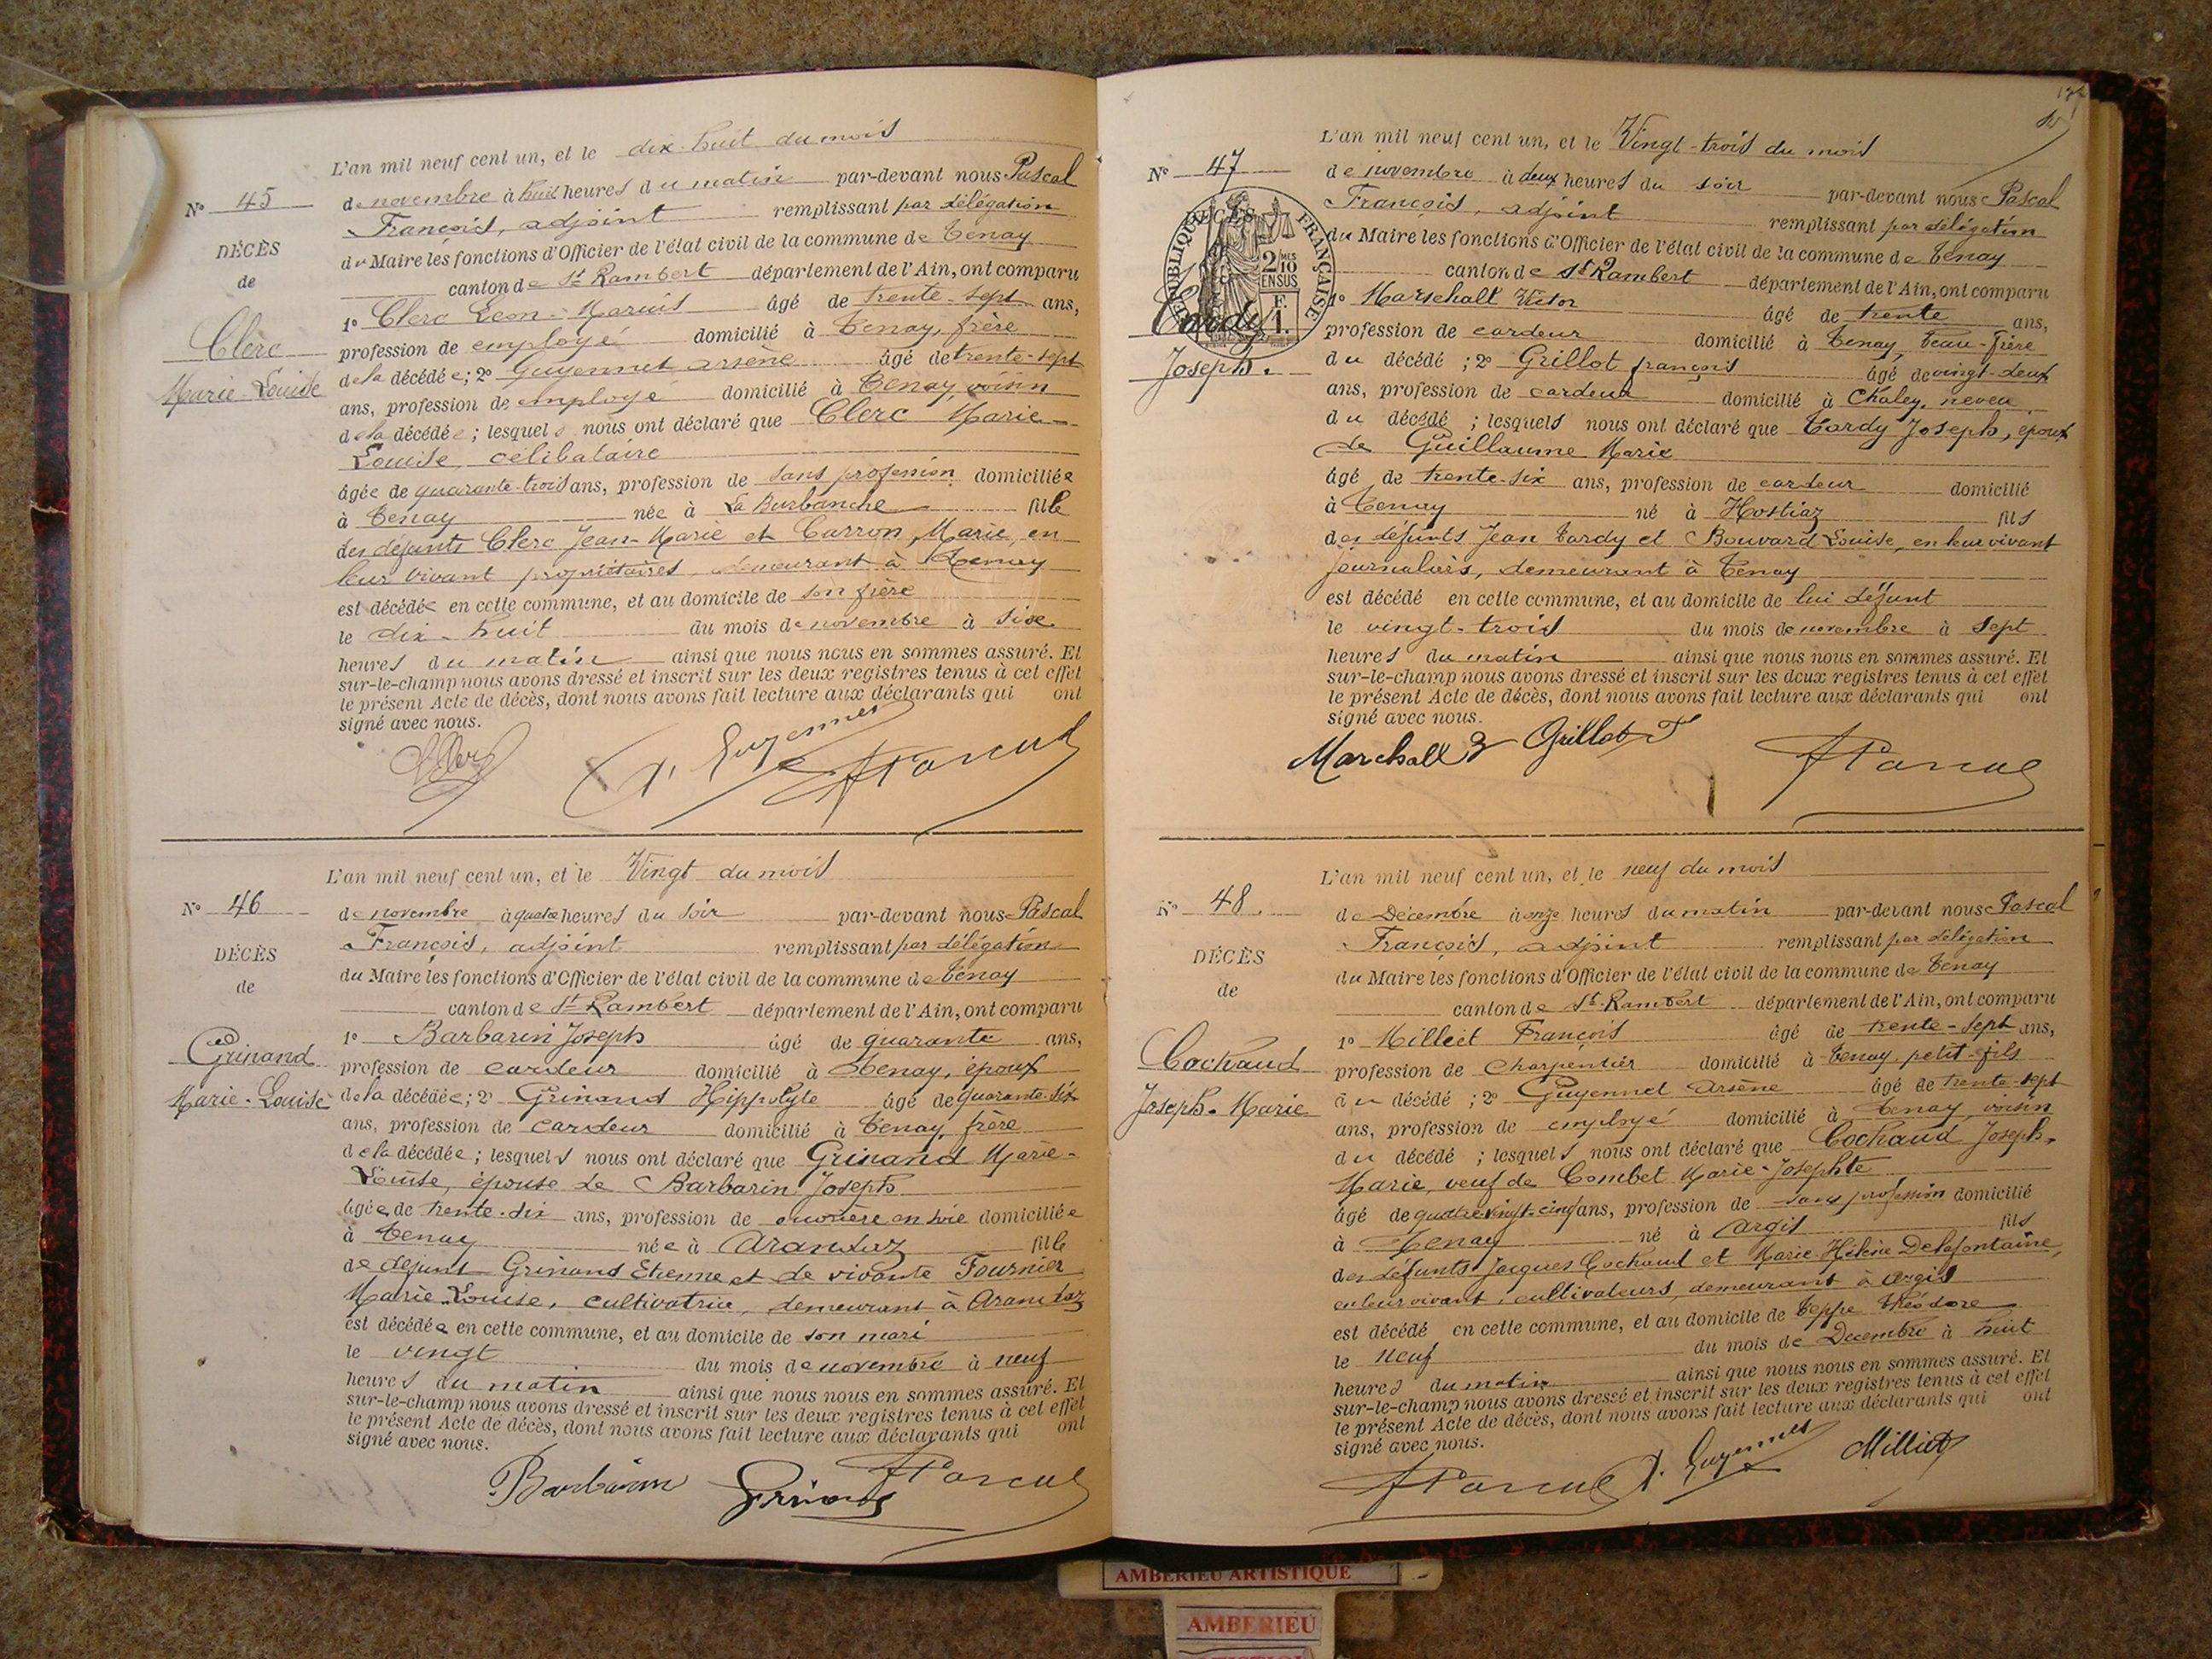 L'an mil neuf cent un, et le dix-huit du mois
N° 45
de novembre à huit heures du matin par-devant nous Pascal
François, adjoint remplissant par délégation
DÉCÈS
du Maire les fonctions d'Officier de l'état civil de la commune de Tenay
de
canton de St Rambert département de l'Ain, ont comparu
1° Clerc Leon-Marius âgé de trente-sept ans,
Clerc
profession de employé domicilié à Tenay, frère
Marie-Louise
de la décédée; 2° Guyennet arsène âgé de trente-sept
ans, profession de employé domicilié à Tenay, voisin
de la décédée; lesquels nous ont déclaré que Clerc Marie-
Louise, célibataire
âgée de quarante-trois ans, profession de sans profession domiciliée
à Tenay née à La Burbanche fille
des défunts Clerc Jean-Marie et Carron Marie, en
leur vivant propriétaires, demeurant à Tenay
est décédée en cette commune, et au domicile de son frère
le dix-huit du mois de novembre à sixe
heures du matin ainsi que nous nous en sommes assuré. Et
sur-le-champ nous avons dressé et inscrit sur les deux registres tenus à cet effet
le présent Acte de décès, dont nous avons fait lecture aux déclarants qui ont
signé avec nous.
A. Guyennet
FPascal
L'an mil neuf cent un, et le Vingt du mois
N° 46
de novembre à quatre heures du soir par-devant nous Pascal
François, adjoint remplissant par délégation
DÉCÈS
du Maire les fonctions d'Officier de l'état civil de la commune de Tenay
de
canton de St Rambert département de l'Ain, ont comparu
1° Barbarin Joseph âgé de quarante ans,
Grinand
profession de cardeur domicilié à Tenay, époux
Marie-Louise
de la décédée; 2° Grinand Hippolyte âgé de quarante-six
ans, profession de cardeur domicilié à Tenay, frère
de la décédée; lesquels nous ont déclaré que Grinand Marie-
Louise, épouse de Barbarin Joseph
âgée de trente-six ans, profession de ouvrière en soie domiciliée
à Tenay née à Arandaz fille
de défunt Grinand Etienne et de vivante Fournier
Marie-Louise, cultivatrice, demeurant à Arandaz
est décédée en cette commune, et au domicile de son mari
le vingt du mois de novembre à neuf
heures du matin ainsi que nous nous en sommes assuré. Et
sur-le-champ nous avons dressé et inscrit sur les deux registres tenus à cet effet
le présent Acte de décès, dont nous avons fait lecture aux déclarants qui ont
signé avec nous.
Barbarin Grinand FPascal
L'an mil neuf cent un, et le Vingt-trois du mois
N° 47
de novembre à deux heures du soir par-devant nous Pascal
François, adjoint remplissant par délégation
RÉPUBLIQUE FRANÇAISE
2/10 MES
EN SUS
1 F.
du Maire les fonctions d'Officier de l'état civil de la commune de Tenay
canton de St Rambert département de l'Ain, ont comparu
1° Marschall Victor âgé de trente ans,
Tardy
profession de cardeur domicilié à Tenay, beau-frère
Joseph.
du décédé; 2° Grillot françois âgé de vingt-deux
ans, profession de cardeur domicilié à Chaley, neveu
du décédé; lesquels nous ont déclaré que Tardy Joseph, époux
de Guillaume Marie
âgé de trente-six ans, profession de cardeur domicilié
à Tenay né à Hostiaz fils
des défunts Jean Tardy et Bouvard Louise, en leur vivant
journaliers, demeurant à Tenay
est décédé en cette commune, et au domicile de lui défunt
le vingt-trois du mois de novembre à sept
heures du matin ainsi que nous nous en sommes assuré. Et
sur-le-champ nous avons dressé et inscrit sur les deux registres tenus à cet effet
le présent Acte de décès, dont nous avons fait lecture aux déclarants qui ont
signé avec nous.
Marchall Grillot F FPascal
L'an mil neuf cent un, et le neuf du mois
N° 48.
de Décembre à onze heures du matin par-devant nous Pascal
François, adjoint remplissant par délégation
DÉCÈS
du Maire les fonctions d'Officier de l'état civil de la commune de Tenay
de
canton de St-Rambert département de l'Ain, ont comparu
1° Milliet François âgé de trente-sept ans,
Cochaud
profession de charpentier domicilié à Tenay, petit-fils
Joseph-Marie
du décédé; 2° Guyennet Arsène âgé de trente-sept
ans, profession de employé domicilié à Tenay, voisin
du décédé; lesquels nous ont déclaré que Cochaud Joseph-
Marie, veuf de Combet Marie-Josephte
âgé de quatre-vingt-cinq ans, profession de sans profession domicilié
à Tenay né à Argis fils
des défunts Jacques Cochaud et Marie-Hélène Delafontaine,
en leur vivant, cultivateurs, demeurant à Argis
est décédé en cette commune, et au domicile de Teppe Théodore
le neuf du mois de Decembre à huit
heures du matin ainsi que nous nous en sommes assuré. Et
sur-le-champ nous avons dressé et inscrit sur les deux registres tenus à cet effet
le présent Acte de décès, dont nous avons fait lecture aux déclarants qui ont
signé avec nous.
FPascal A. Guyennet Milliet
AMBERIEU ARTISTIQUE
AMBERIEU